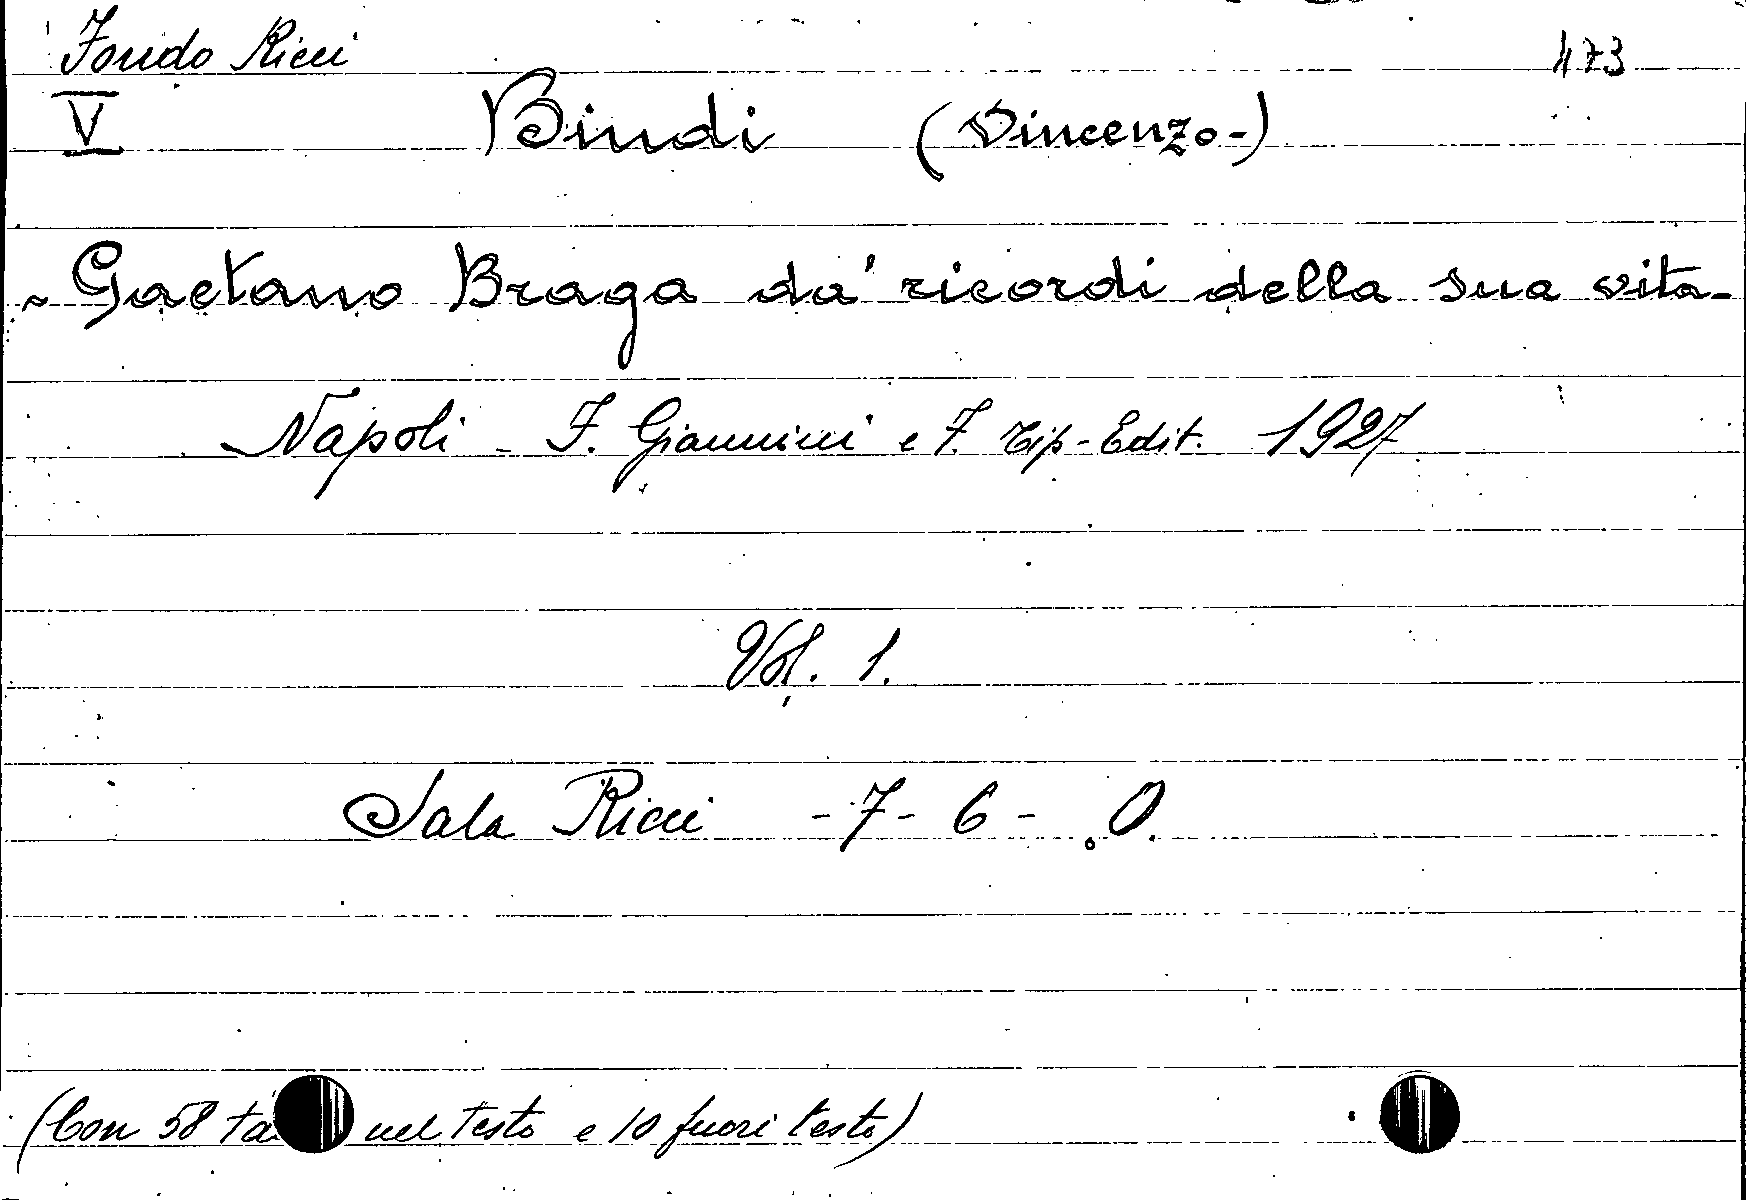 Fondo Ricci 473
V Bindi (Vincenzo-)
~ Gaetano Braga da' ricordi della sua vita-
Napoli - F. Giannini e F. Tip-Edit. 1927
Vol. 1.
Sala Ricci - 7 - 6 - 0.
(Con 58 nel testo e 10 fuori testo)